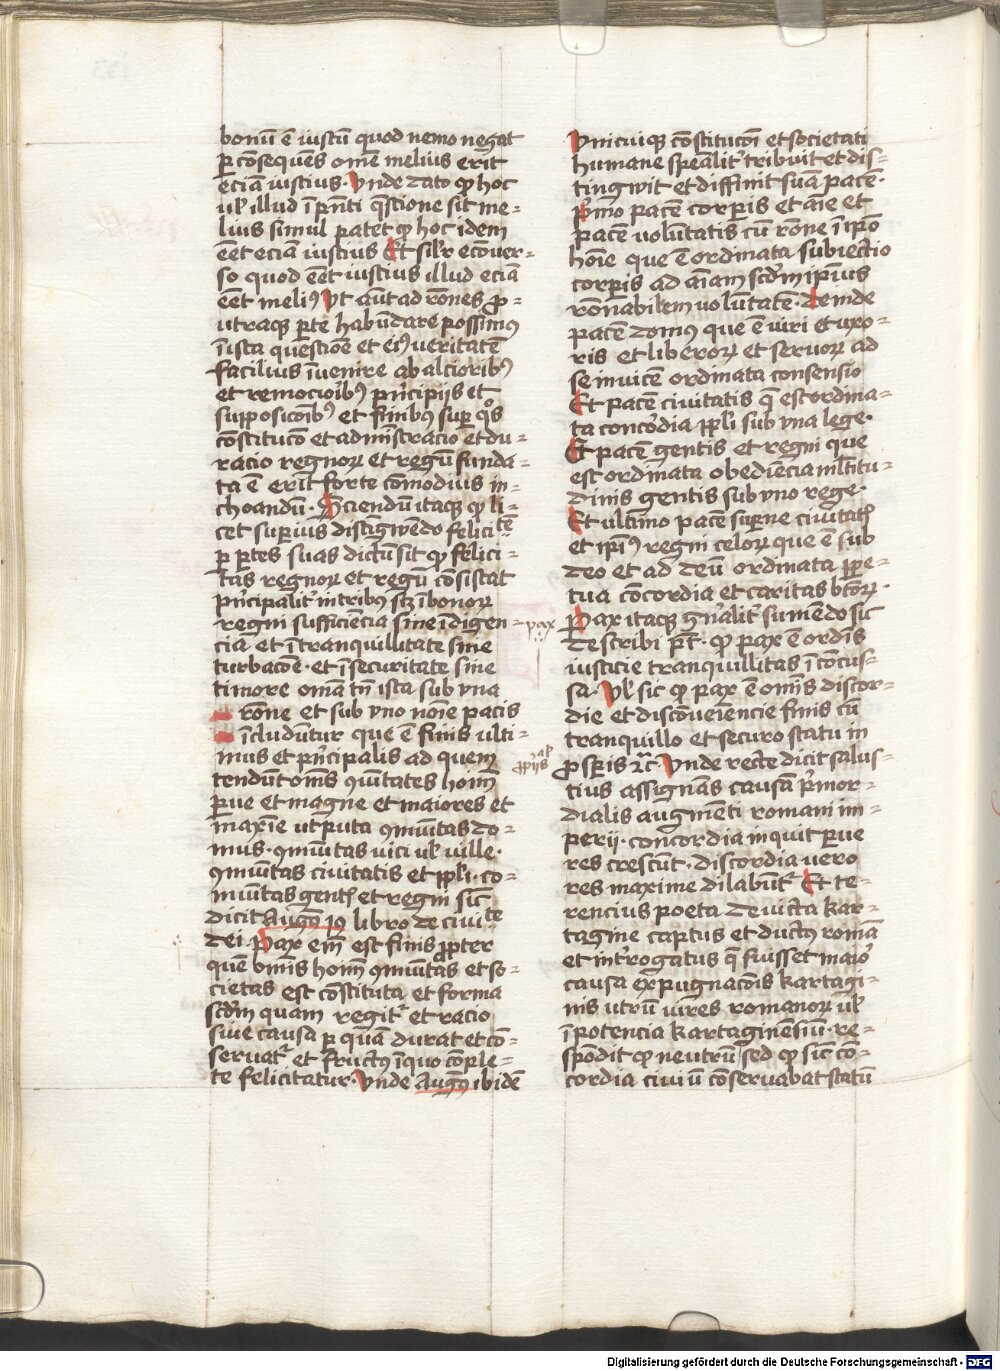 bonū ē iustū quod nemo negat
ꝑ cōsequēs omē melius erit
eciā iustius · Vnde dato qꝫ hoc
ul' illud ī pn̄ti q̄stione sit me-
lius simul patet qꝫ hoc idem
eēt eciā iustius Et silr̄ ecōuer-
so quod eēt iustius illud eciā
eēt meliꝰ Vt aūt ad rōnes ꝓ
utraqꝫ ꝑte habūdare possimꝰ
ī ista questione et eiꝰ veritatē
facilius īuenire ab alcioribꝰ
et remocioibꝰ pⁱncipijs et
supposicōibꝰ et finibꝰ suꝑ qͦs
cōstitucō et admīstracio et du-
racio regnoꝝ et regū funda-
ta ē erit forte cōmodius in-
choandū · Sciendū itaqꝫ qꝫ li-
cet suꝑius distīgwēdo felicitē
ꝑ ꝑtes suas dictū sit qꝫ felici-
tas regnoꝝ et regū cōsistat
pⁱncipalit' in tribꝰ scꝫ ī bonoꝝ
regni sufficiēcia sine īdigen-
cia et ī tranquillitate sine
turbacōe · et ī securitate sine
timore om̄ia tn̄ ista sub vna
rōne et sub vno noīe pacis
īcludūtur que ē finis ulti-
mus et pⁱncipalis ad quem
tendūt om̄s ꝯuītates hoim̄
ꝑue et magne et maiores et
maxīe ut puta ꝯmuītas do-
mus · ꝯmuītas vici ul' ville ·
ꝯmuītas ciuitatis et ppl'i · co-
muītas gentis et regni sic
dicit Augꝰ 19 libro de ciuitē
dei · Pax em̄ est finis ꝓpter
quē om̄is hoim̄ ꝯmuītas et so-
cietas est cōstituta et forma
scdm̄ quam regit' et racio
siue causa ꝑ quā durat et cō-
seruat' et fructꝰ ī quo cōple-
te felicitatur · Vnde Augꝰ ibidē
pax
al'
ꝓpijs
Vnicuiqꝫ cōstitucōi et societati
humane sp̄ealit' tribuit et dis-
tingwit et diffinit suā pacē ·
Pⁱmo pacē corꝑis et aīe et
pacē volūtatis cū rōne ī ip̄o
hoīe que ē ordinata subiectio
corꝑis ad aīam scdm̄ ip̄ius
rōnabilem volūtatē · Deinde
pacē domꝰ que ē viri et uxo-
ris et liberoꝝ et seruoꝝ ad
se inuicē ordinata consensio
Et pacē ciuitatis q̄ est ordina-
ta concordia ppl'i sub vna lege ·
Et pacē gentis et regni que
est ordinata obediēcia ml'titu-
dinis gentis sub vno rege ·
Et ultimo pacē suꝑne ciuitatis
et ip̄iꝰ regni celoꝝ que ē sub
deo et ad deū ordinata ꝑpe-
tua cōcordia et caritas btōꝝ ·
Pax itaqꝫ gn̄alit' sumēdo sic
describi pt̄ · qꝫ pax ē ordīs
iusticie tranquillitas īcōcus-
sa · Vl' sic qꝫ pax ē om̄is discor-
die et discōueiēncie finis cū
tranquillo et securo statu in
ꝓsꝑis ⁊c̄ · Vnde recte dicit salus-
tius assignās causā pⁱmor-
dialis augmēti romani im-
perij · concordia inquit ꝑue
res crescūt · discordia uero
res maxime dilabūt' Et te-
rencius poeta deuicta kar-
tagine captus et ductꝰ romā
et int'rogatus q̄ fuisset maior
causa expugnacōis kartagi-
nis utrū vires romanoꝝ ul'
īpotencia kartaginēsiū · re-
spōdit qꝫ neutrū sed qꝫ sic cō-
cordia ciuiū cōseruabat statū
Digitalisierung gefördert durch die Deutsche Forschungsgemeinschaft - DFG